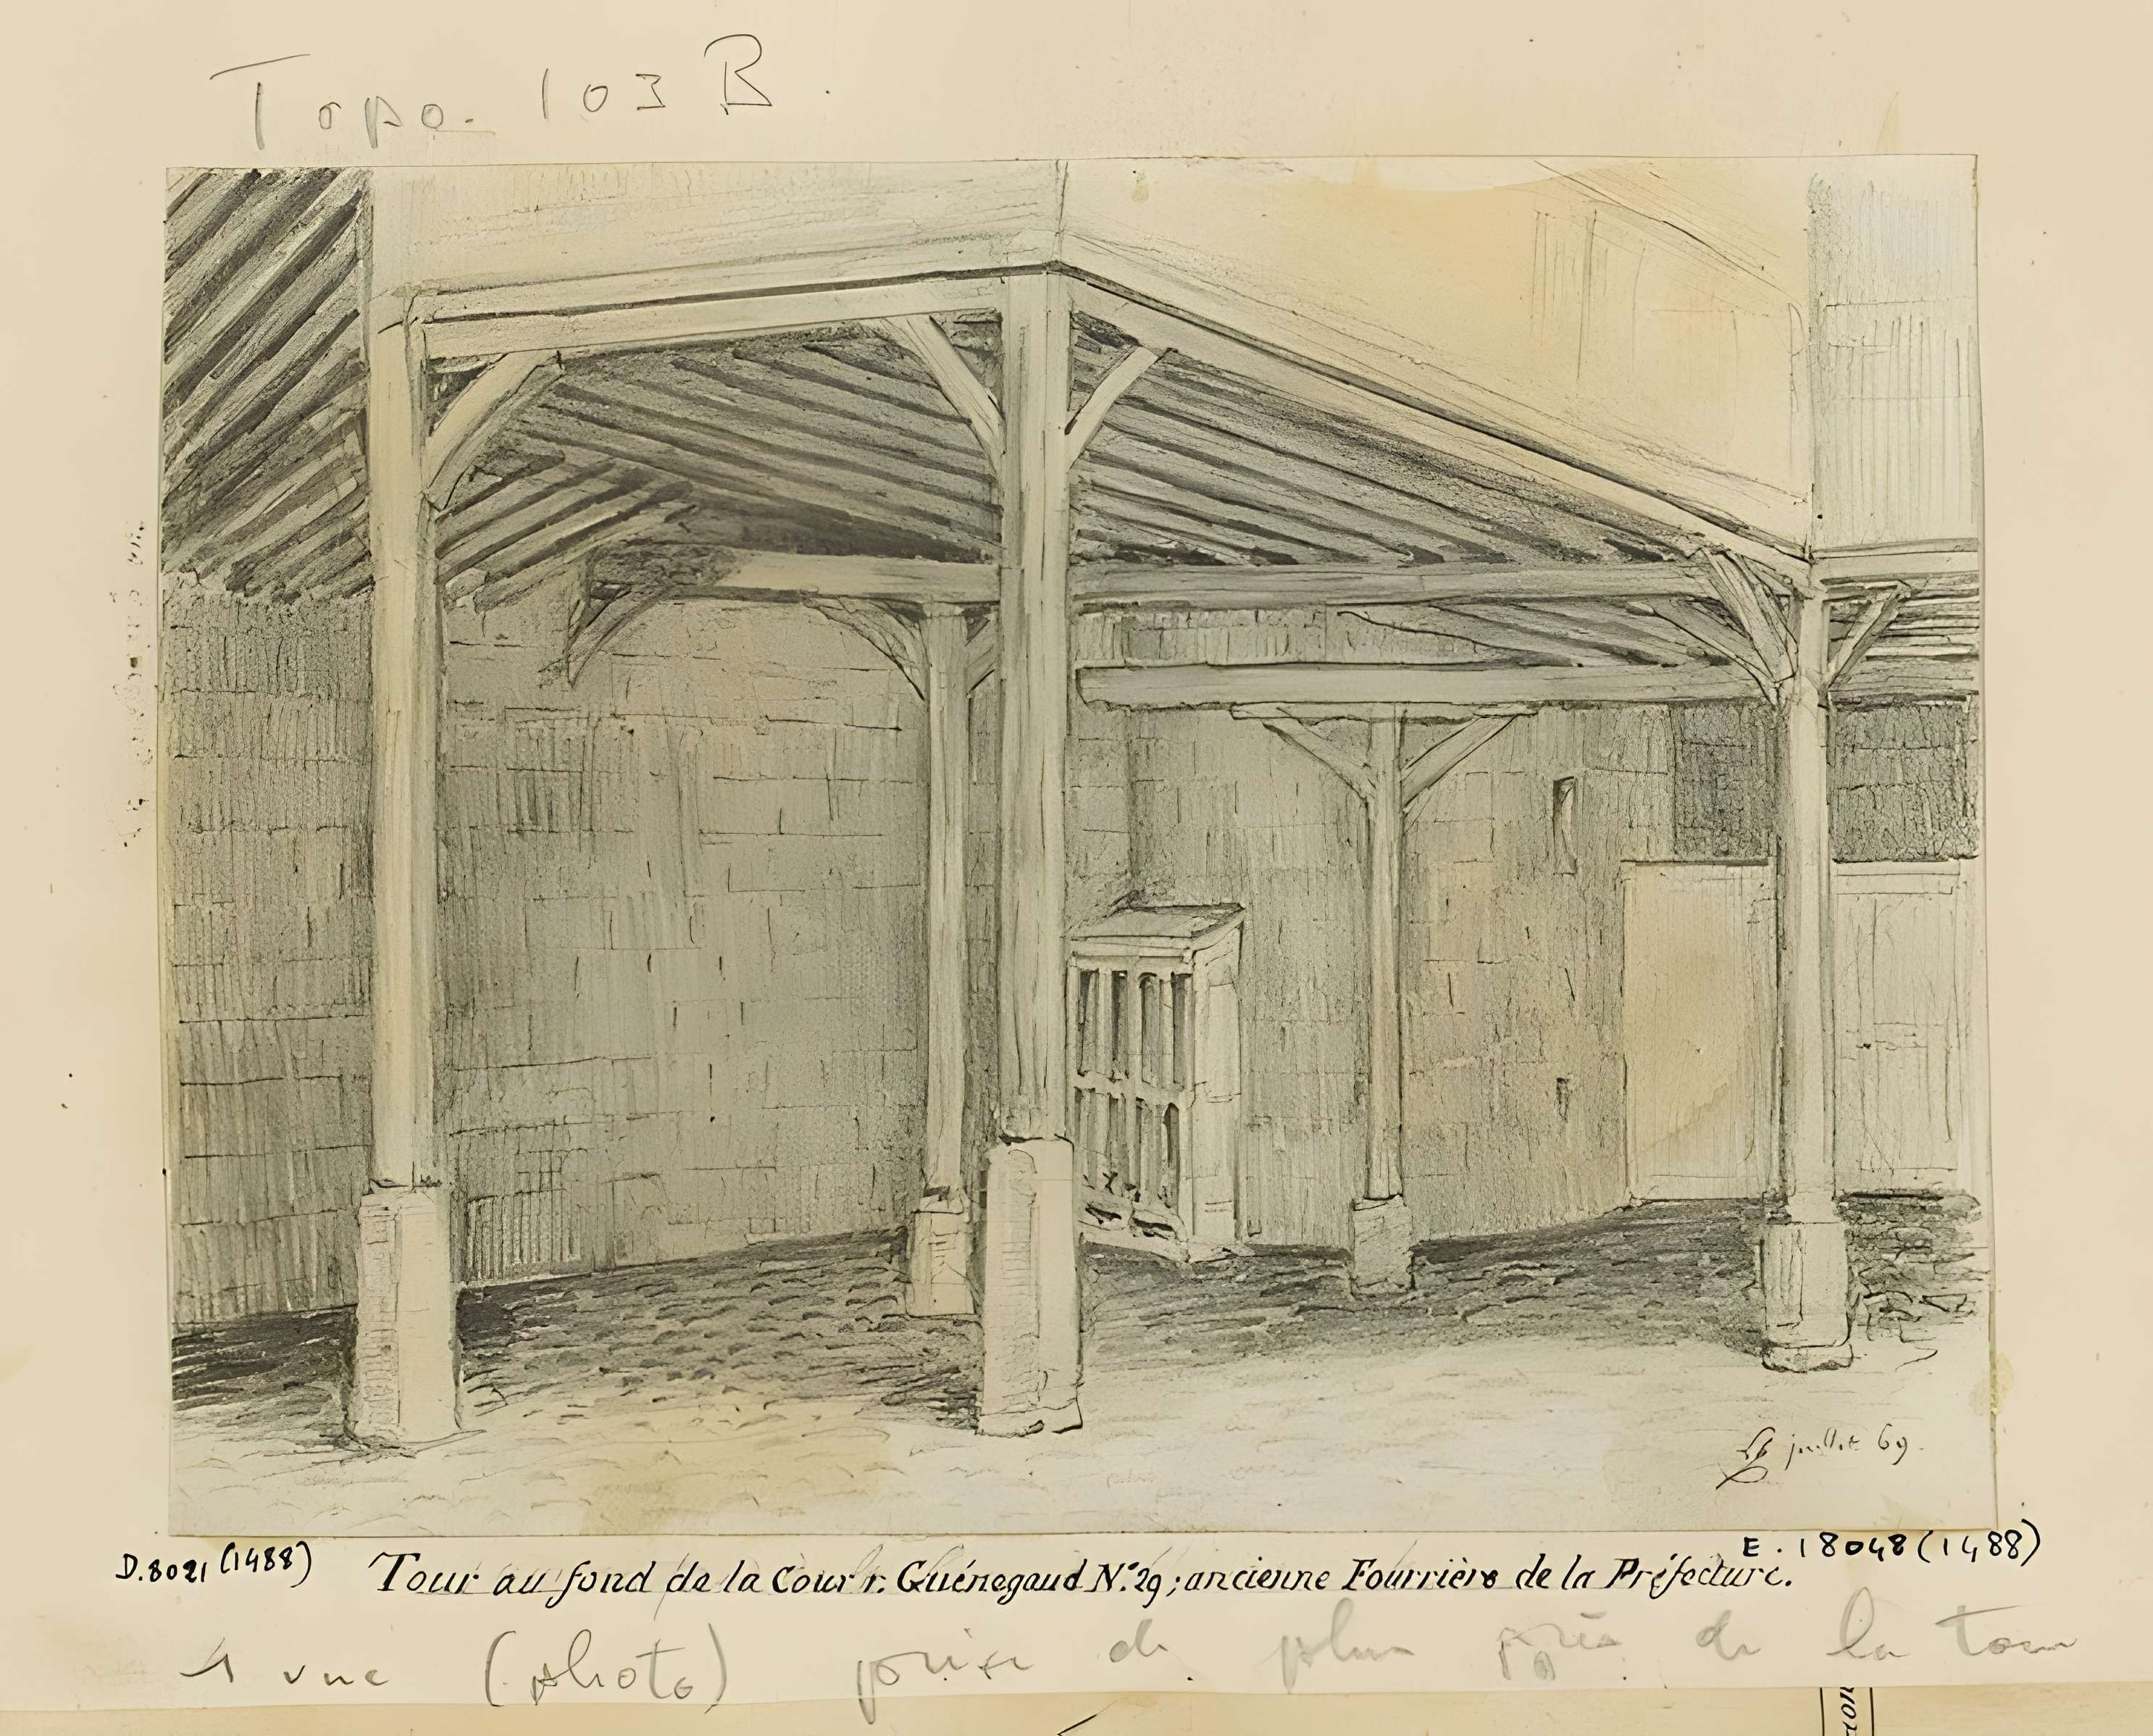 Topo. 103 B.
juillet 69.
D.8021 (1488)
E. 18048 (1488)
Tour au fond de la Cour r. Guénegaud N.° 29; ancienne Fourrière de la Préfecture.
1 vue (photo) prise de plus près de la tour